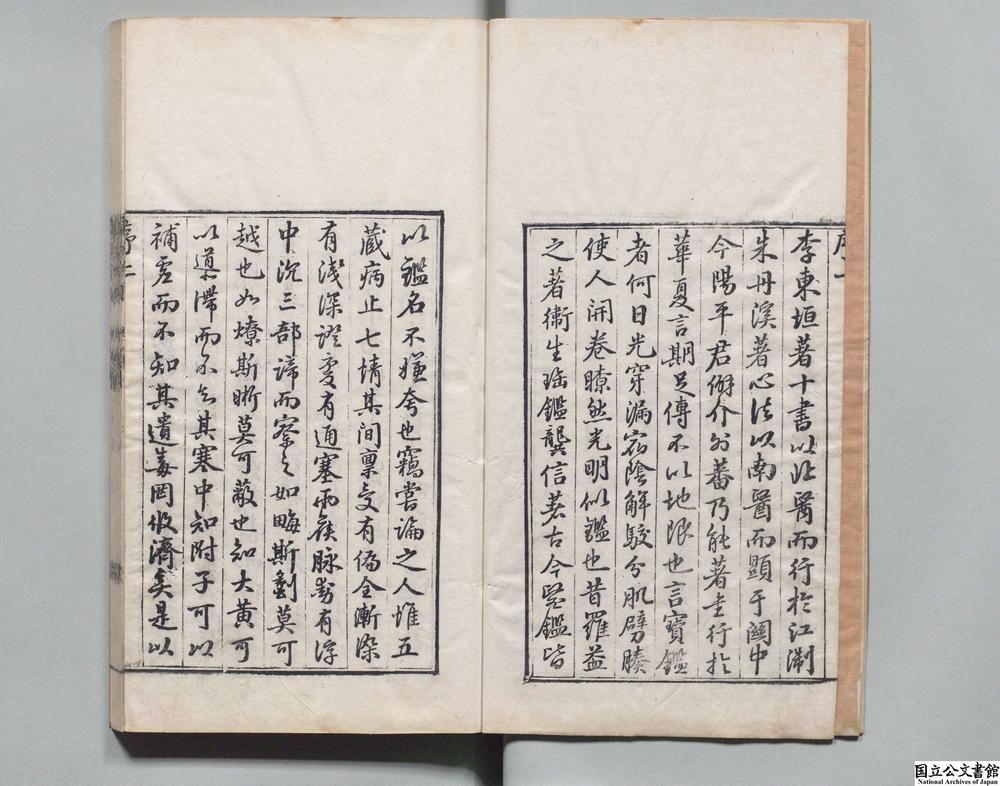 李東垣著十書以北醫而行於江淛
朱丹溪著心法以南醫而顯于關中
今陽平君僻介外蕃乃能著書行於
華夏言期足傳不以地限也言寶鑑
者何日光穿漏宿陰解駁分肌劈腠
使人開卷瞭然光明似鑑也昔羅益
之著衛生寶鑑龔信著古今醫鑑皆
以鑑名不嫌夸也竊嘗論之人惟五
蔵病止七情其間禀受有偏全漸染
有淺深證变有通塞而候脉動有浮
中沉三部諦而察之如畴斯劃莫可
越也如燎斯晣莫可蔽也知大黄可
以導滯而不知其寒中知附子可以
補虚而不知其遺毒罔攸濟矣是以
序一
序二
国立公文書館
National Archives of Japan